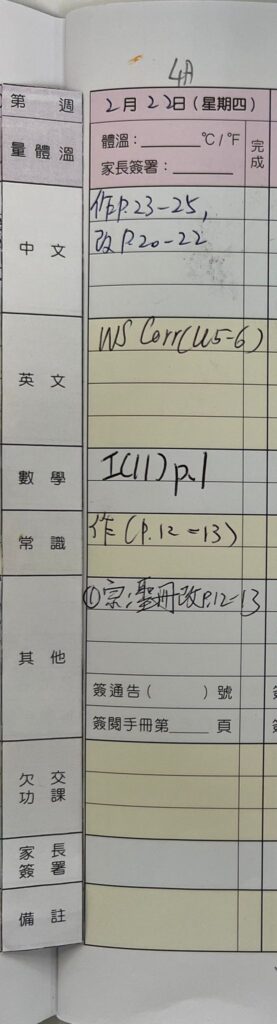 4A
第 週
2月22日(星期四)
量體溫
體溫:______ °C/°F
家長簽署:______
完成
中文
作P.23-25,
改P.20-22
英文
WS Corr(U5-6)
數學
I(11) p.1
常識
作(P.12-13)
其他
①宗:聖冊改P.12-13
簽通告( )號
簽閱手冊第____頁
欠交功課
家長簽署
備註